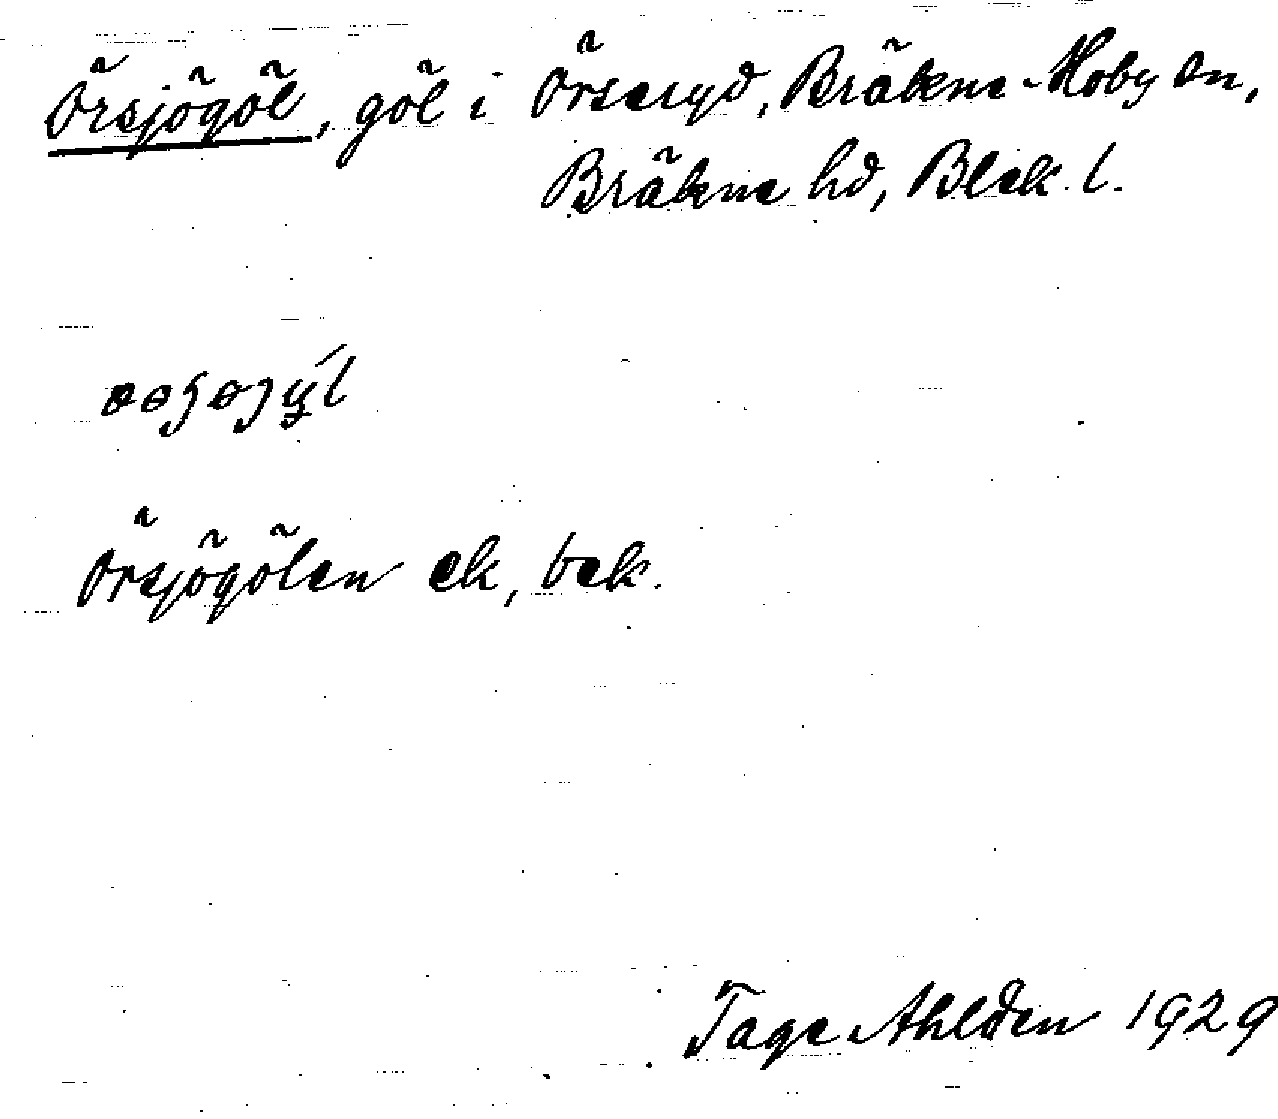 Örsjögöl, göl i Örseryd, Bräkne-Hoby sn,
Bräkne hd, Blek. l.
Örsjögölen ek, bek.
Tage Ahldén 1929